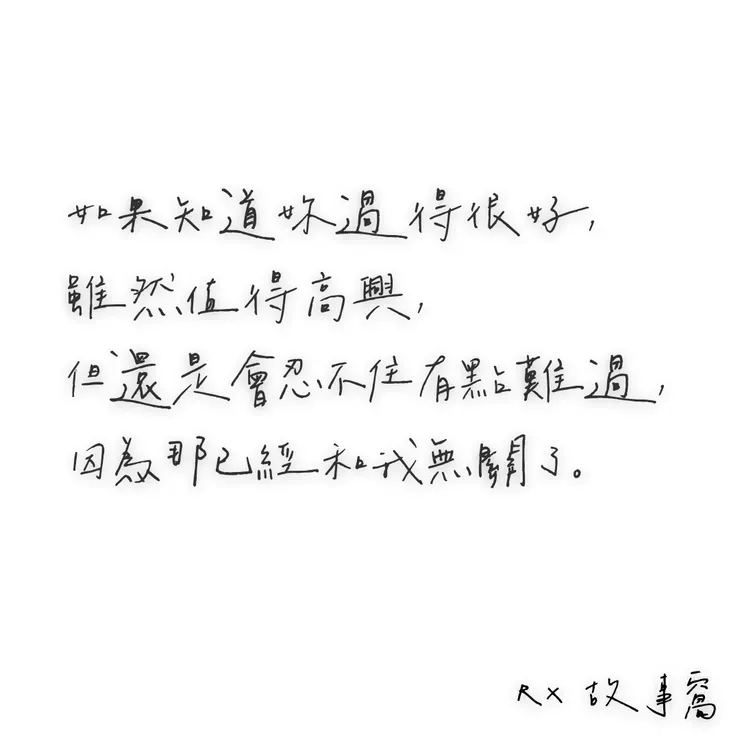 如果知道妳過得很好,
雖然值得高興,
但還是會忍不住有點難過,
因為那已經和我無關了。
RX 故事窩